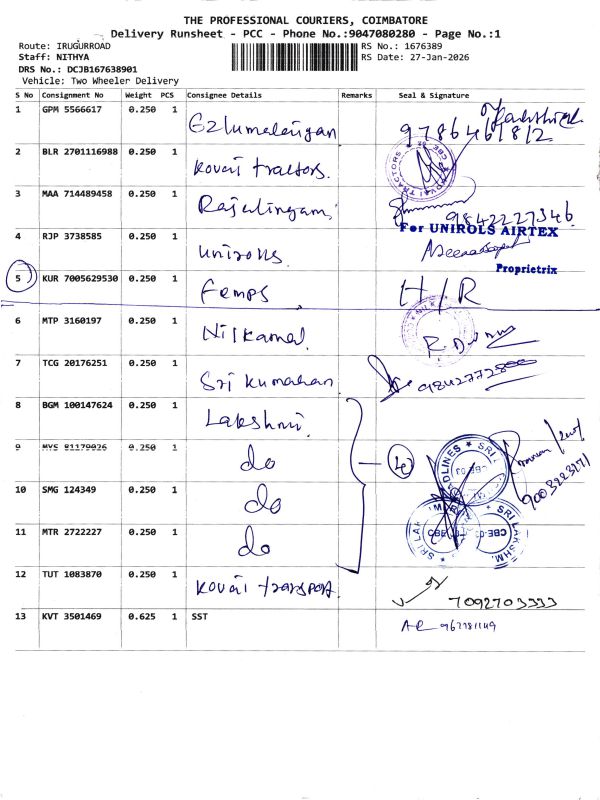 THE PROFESSIONAL COURIERS, COIMBATORE
Delivery Runsheet - PCC - Phone No.:9047080280 - Page No.:1
Route: IRUGURROAD RS No.: 1676389
Staff: NITHYA RS Date: 27-Jan-2026
DRS No.: DCJB167638901
Vehicle: Two Wheeler Delivery
S No Consignment No Weight PCS Consignee Details Remarks Seal & Signature
1 GPM 5566617 0.250 1 Ezhumalaingan 9786461812
2 BLR 2701116988 0.250 1 Kovai tractors.
3 MAA 714489458 0.250 1 Rajalingam 9842227346
For UNIROLS AIRTEX
4 RJP 3738585 0.250 1 Unirolls
Proprietrix
5 KUR 7005629530 0.250 1 Femps H/R
6 MTP 3160197 0.250 1 Nilkamal
7 TCG 20176251 0.250 1 Sri Kumaran
8 BGM 100147624 0.250 1 Lakshmi
9 MYS 81179026 0.250 1 do
10 SMG 124349 0.250 1 do
11 MTR 2722227 0.250 1 do
12 TUT 1083870 0.250 1 Kovai transport. 7092703333
13 KVT 3501469 0.625 1 SST